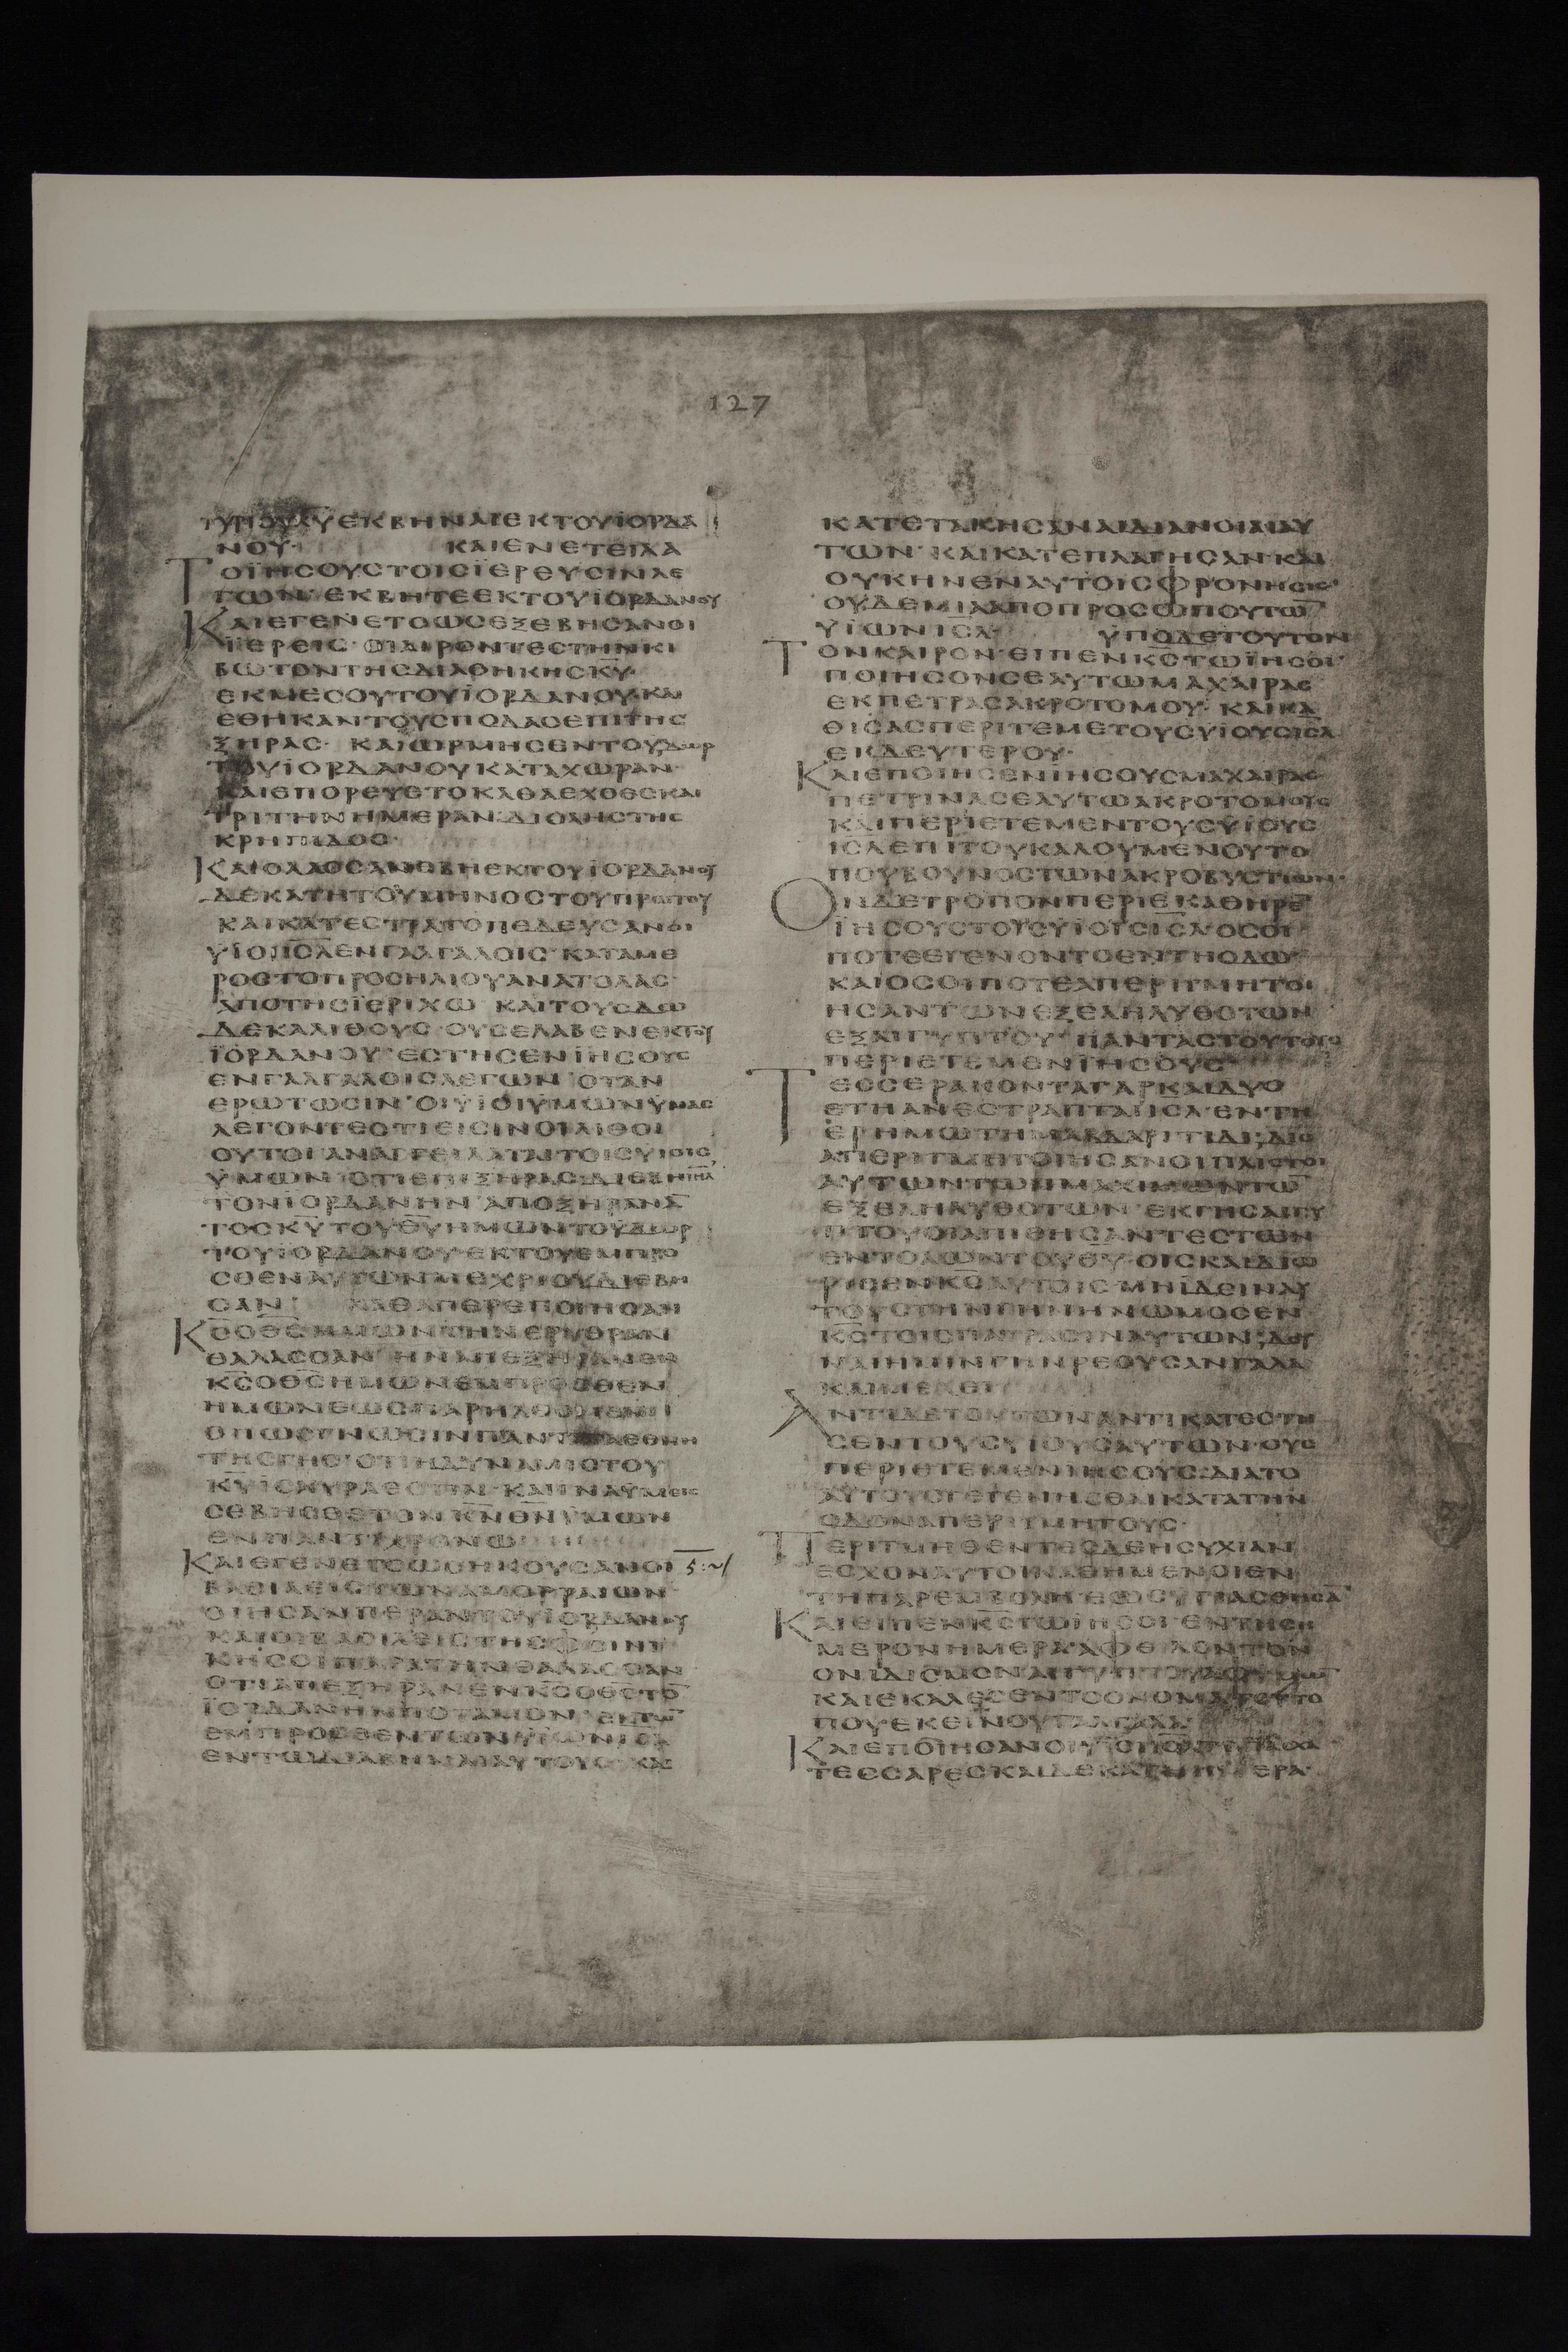 127
ΕΚΒΗΝΑΙΕΚΤΟΥΙΟΡΔΑ
ΝΟΥ· ΚΑΙΕΝΕΤΕΙΛΑ
ΤΟΪΗΣΟΥΣΤΟΙΣΪΕΡΕΥΣΙΝΛΕ
ΓΩΝ· ΕΚΒΗΤΕΕΚΤΟΥΙΟΡΔΑΝΟΥ
ΚΑΙΕΓΕΝΕΤΟΩΣΕΞΕΒΗΣΑΝΟΙ
ΪΕΡΕΙΣ· ΟΙΑΙΡΟΝΤΕΣΤΗΝΚΙ
ΒΩΤΟΝΤΗΣΔΙΑΘΗΚΗΣΚΥ·
ΕΚΜΕΣΟΥΤΟΥΪΟΡΔΑΝΟΥ·ΚΑΙ
ΕΘΗΚΑΝΤΟΥΣΠΟΔΑΣΕΠΙΤΗΣ
ΞΗΡΑΣ· ΚΑΙΩΡΜΗΣΕΝΤΟΥΔΩΡ
ΤΟΥΪΟΡΔΑΝΟΥΚΑΤΑΧΩΡΑΝ·
ΚΑΙΕΠΟΡΕΥΕΤΟΚΑΘΑΕΧΘΕΣΚΑΙ
ΤΡΙΤΗΝΗΜΕΡΑΝΔΙΟΛΗΣΤΗΣ
ΚΡΗΠΙΔΟΣ·
ΚΑΙΟΛΑΟΣΑΝΕΒΗΕΚΤΟΥΙΟΡΔΑΝΟΥ
ΔΕΚΑΤΗΤΟΥΜΗΝΟΣΤΟΥΠΡΩΤΟΥ
ΚΑΙΚΑΤΕΣΤΡΑΤΟΠΕΔΕΥΣΑΝΟΙ
ΥΪΟΙΙΣΛΕΝΓΑΛΓΑΛΟΙΣ·ΚΑΤΑΜΕ
ΡΟΣΤΟΠΡΟΣΗΛΙΟΥΑΝΑΤΟΛΑΣ·
ΑΠΟΤΗΣΪΕΡΙΧΩ ΚΑΙΤΟΥΣΔΩ
ΔΕΚΑΛΙΘΟΥΣ ΟΥΣΕΛΑΒΕΝΕΚΤΟΥ
ΪΟΡΔΑΝΟΥ· ΕΣΤΗΣΕΝΪΗΣΟΥΣ
ΕΝΓΑΛΓΑΛΟΙΣΛΕΓΩΝ ΟΤΑΝ
ΕΡΩΤΩΣΙΝ·ΟΙΥΪΟΙΫΜΩΝΫΜΑΣ
ΛΕΓΟΝΤΕΣΤΙΕΙΣΙΝΟΙΛΙΘΟΙ
ΟΥΤΟΙΑΝΑΓΓΕΙΛΑΤΑΙΤΟΙΣΥΙΟΙΣ
ΫΜΩΝ ΟΤΙΕΠΙΞΗΡΑΣΔΙΕΒΗΙΗΛ
ΤΟΝΪΟΡΔΑΝΗΝ ΑΠΟΞΗΡΑΝΑ
ΤΟΣΚΥΤΟΥΘΥΗΜΩΝΤΟΥΔΩΡ
ΤΟΥΙΟΡΔΑΝΟΥΕΚΤΟΥΕΜΠΡΟ
ΣΘΕΝΑΥΤΩΝΜΕΧΡΙΟΥΔΙΕΒΗ
ΣΑΝ ΚΑΘΑΠΕΡΕΠΟΙΗΣΑΝ
ΚΣΟΘΣΗΜΩΝΤΗΝΕΡΥΘΡΑΝ
ΘΑΛΑΣΣΑΝ ΗΝΑΠΕΞΗΡΑΝΕΝ
ΚΣΟΘΣΗΜΩΝΕΜΠΡΟΣΘΕΝ
ΗΜΩΝΕΩΣΠΑΡΗΛΘΟΜΕΝ
ΟΠΩΣΓΝΩΣΙΝΠΑΝΤΑΤΑΕΘΝΗ
ΤΗΣΓΗΣ ΟΤΙΗΔΥΝΑΜΙΣΤΟΥ
ΚΥΪΣΧΥΡΑΕΣΤΙΝ· ΚΑΙΙΝΑΫΜΕΙΣ
ΣΕΒΗΣΘΕΤΟΝΚΝΘΝΫΜΩΝ
ΕΝΠΑΝΤΙΧΡΟΝΩ
ΚΑΙΕΓΕΝΕΤΟΩΣΗΚΟΥΣΑΝΟΙ
ΒΑΣΙΛΕΙΣΤΩΝΑΜΟΡΡΑΙΩΝ
ΟΙΗΣΑΝΠΕΡΑΝΤΟΥΪΟΡΔΑΝΟΥ
ΚΑΙΟΙΒΑΣΙΛΕΙΣΤΗΣΦΟΙΝΙ
ΚΗΣΟΙΠΑΡΑΤΗΝΘΑΛΑΣΣΑΝ
ΟΤΙΑΠΕΞΗΡΑΝΕΝΚΣΟΘΣΤΟ
ΪΟΡΔΑΝΗΝΠΟΤΑΜΟΝ ΕΚΤΩ
ΕΜΠΡΟΣΘΕΝΤΩΝΥΪΩΝΙΣΛ
ΕΝΤΩΔΙΑΒΗΝΑΙΑΥΤΟΥΣ· ΚΑΙ
ΚΑΤΕΤΑΚΗΣΑΝΑΙΔΙΑΝΟΙΑΙΑΥ
ΤΩΝ· ΚΑΙΚΑΤΕΠΛΑΓΗΣΑΝΚΑΙ
ΟΥΚΗΝΕΝΑΥΤΟΙΣΦΡΟΝΗΣΙΣ·
ΟΥΔΕΜΙΑΑΠΟΠΡΟΣΩΠΟΥΤΩ
ΥΪΩΝΙΣΛ· ΥΠΟΔΕΤΟΥΤΟΝ
ΤΟΝΚΑΙΡΟΝ· ΕΙΠΕΝΚΣΤΩΪΗΣΟΙ·
ΠΟΙΗΣΟΝΣΕΑΥΤΩΜΑΧΑΙΡΑΣ
ΕΚΠΕΤΡΑΣΑΚΡΟΤΟΜΟΥ· ΚΑΙΚΑ
ΘΙΣΑΣΠΕΡΙΤΕΜΕΤΟΥΣΥΪΟΥΣΙΣΛ
ΕΚΔΕΥΤΕΡΟΥ·
ΚΑΙΕΠΟΙΗΣΕΝΪΗΣΟΥΣΜΑΧΑΙΡΑΣ
ΠΕΤΡΙΝΑΣΕΑΥΤΩΑΚΡΟΤΟΜΟΥΣ
ΚΑΙΠΕΡΙΕΤΕΜΕΝΤΟΥΣΥΪΟΥΣ
ΙΣΛΕΠΙΤΟΥΚΑΛΟΥΜΕΝΟΥΤΟ
ΠΟΥΒΟΥΝΟΣΤΩΝΑΚΡΟΒΥΣΤΙΩΝ·
ΟΝΔΕΤΡΟΠΟΝΠΕΡΙΕΚΑΘΗΡΕ
ΪΗΣΟΥΣΤΟΥΣΥΪΟΥΣΙΣΛΟΣΟΙ
ΠΟΤΕΕΓΕΝΟΝΤΟΕΝΤΗΟΔΩ
ΚΑΙΟΣΟΙΠΟΤΕΑΠΕΡΙΤΜΗΤΟΙ
ΗΣΑΝΤΩΝΕΞΕΛΗΛΥΘΟΤΩΝ
ΕΞΑΙΓΥΠΤΟΥ ΠΑΝΤΑΣΤΟΥΤΟΥΣ
ΠΕΡΙΕΤΕΜΕΝΪΗΣΟΥΣ
ΤΕΣΣΕΡΑΚΟΝΤΑΓΑΡΚΑΙΔΥΟ
ΕΤΗΑΝΕΣΤΡΑΠΤΑΙΙΣΛΕΝΤΗ
ΕΡΗΜΩΤΗΜΑΒΔΑΡΙΤΙΔΙ·ΔΙΟ
ΑΠΕΡΙΤΜΗΤΟΙΗΣΑΝΟΙΠΛΙΣΤΟΙ
ΑΥΤΩΝΤΩΜΜΑΧΙΜΩΝΤΩ
ΕΞΕΛΗΛΥΘΟΤΩΝ ΕΚΓΗΣΑΙΓΥ
ΠΤΟΥΟΙΑΠΙΘΗΣΑΝΤΕΣΤΩΝ
ΕΝΤΟΛΩΝΤΟΥΘΥ·ΟΙΣΚΑΙΔΙΩ
ΡΙΣΕΝΚΣΑΥΤΟΙΣΜΗΙΔΕΙΝΑΥ
ΤΟΥΣΤΗΝΓΗΝΗΝΩΜΟΣΕΝ
ΚΣΤΟΙΣΠΑΤΡΑΣΙΝΑΥΤΩΝ;ΔΟΥ
ΝΑΙΗΜΙΝΓΗΝΡΕΟΥΣΑΝΓΑΛΑ
ΚΑΙΜΕΛΙ
ΑΝΤΙΔΕΤΟΥΤΩΝΑΝΤΙΚΑΤΕΣΤΗ
ΣΕΝΤΟΥΣΥΙΟΥΣΑΥΤΩΝ·ΟΥΣ
ΠΕΡΙΕΤΕΜΕΝΙΗΣΟΥΣ·ΔΙΑΤΟ
ΑΥΤΟΥΣΓΕΓΕΝΗΣΘΑΙΚΑΤΑΤΗΝ
ΟΔΟΝΑΠΕΡΙΤΜΗΤΟΥΣ·
ΠΕΡΙΤΜΗΘΕΝΤΕΣΔΕΗΣΥΧΙΑΝ
ΕΣΧΟΝΑΥΤΟΙΚΑΘΗΜΕΝΟΙΕΝ
ΤΗΠΑΡΕΜΒΟΛΗΕΩΣΥΓΙΑΣΘΗΣΑ
ΚΑΙΕΙΠΕΝΚΣΤΩΪΗΣΟΙ·ΕΝΤΗΣΗ
ΜΕΡΟΝΗΜΕΡΑΑΦΕΙΛΟΝΤΟΝ
ΟΝΙΔΙΣΜΟΝΑΙΓΥΠΤΟΥ
ΚΑΙΕΚΑΛΕΣΕΝΤΟΟΝΟΜΑΤΟΥΤΟ
ΠΟΥΕΚΕΙΝΟΥΓΑΛΓΑΛΑ·
ΚΑΙΕΠΟΙΗΣΑΝΟΙΥΪΟΙ
ΤΕΣΣΑΡΕΣΚΑΙΔΕΚΑΤΗΗΜΕΡΑ·